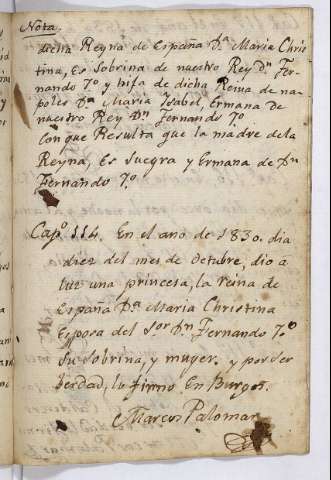 Nota.
dicha Reyna de España Dª Maria Chris
tina, Es Sobrina de nuestro Rey Dn Fer-
nando 7º y hifa de dicha Reina de na-
poles Dª Maria Isabel, Ermana de
nuestro Rey Dn Fernando 7º
Con que Resulta que la madre dela
Reyna, Es Suegra y Ermana de Dn
Fernando 7º.
Capº 114. En el ano de 1830. dia
diez del mes de Octubre, dio a
luz una princesa, la reina de
España Dª Maria Christina
Espora del Sor Dn Fernando 7º
Su Sobrina, y muger. y por ser
berdad, lo firmo En Burgos.
Marcos Palomar